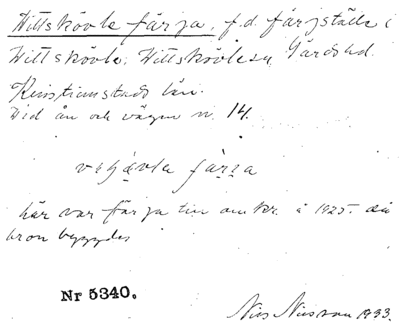 Vittskövle färja, f.d. färjställe i
Vittskövle, Vittskövle sn, Gärds hd.
Kristianstads län.
Vid ån och vägen nr. 14.
färja
här var färja till omkr. å 1925. då
bron byggdes
Nr 5340.
Nils Nilsson 1933.